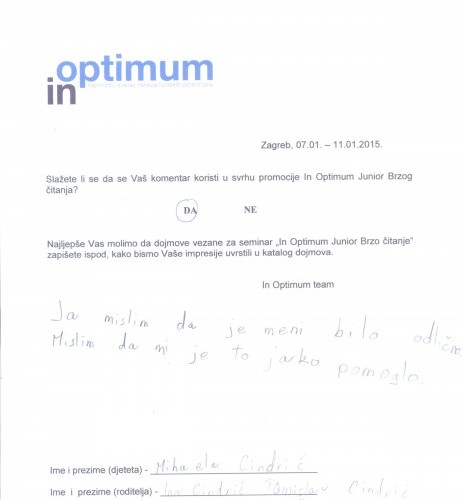 optimum
in
Zagreb, 07.01. – 11.01.2015.
Slažete li se da se Vaš komentar koristi u svrhu promocije In Optimum Junior Brzog
čitanja?
DA NE
Najljepše Vas molimo da dojmove vezane za seminar „In Optimum Junior Brzo čitanje"
zapišete ispod, kako bismo Vaše impresije uvrstili u katalog dojmova.
In Optimum team
Ja mislim da je meni bilo odlično.
Mislim da mi je to jako pomoglo.
Ime i prezime (djeteta) - Mihaela Cindrić
Ime i prezime (roditelja) - Cindrić Tomislav Cindrić